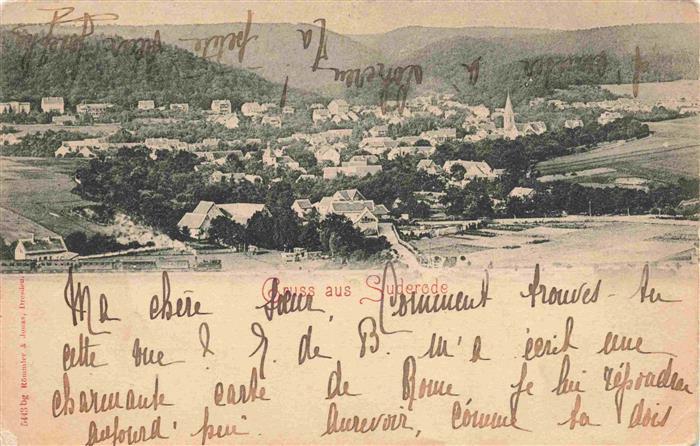 Gruss aus Suderode
Ma chère sœur, Comment trouves-tu
cette vue ? J. de B. m'a écrit une
charmante carte de Rome je lui répondrai
aujourd'hui Aurevoir, comme tu dois
petite
La
à
5443 bg Römmler & Jonas, Dresden